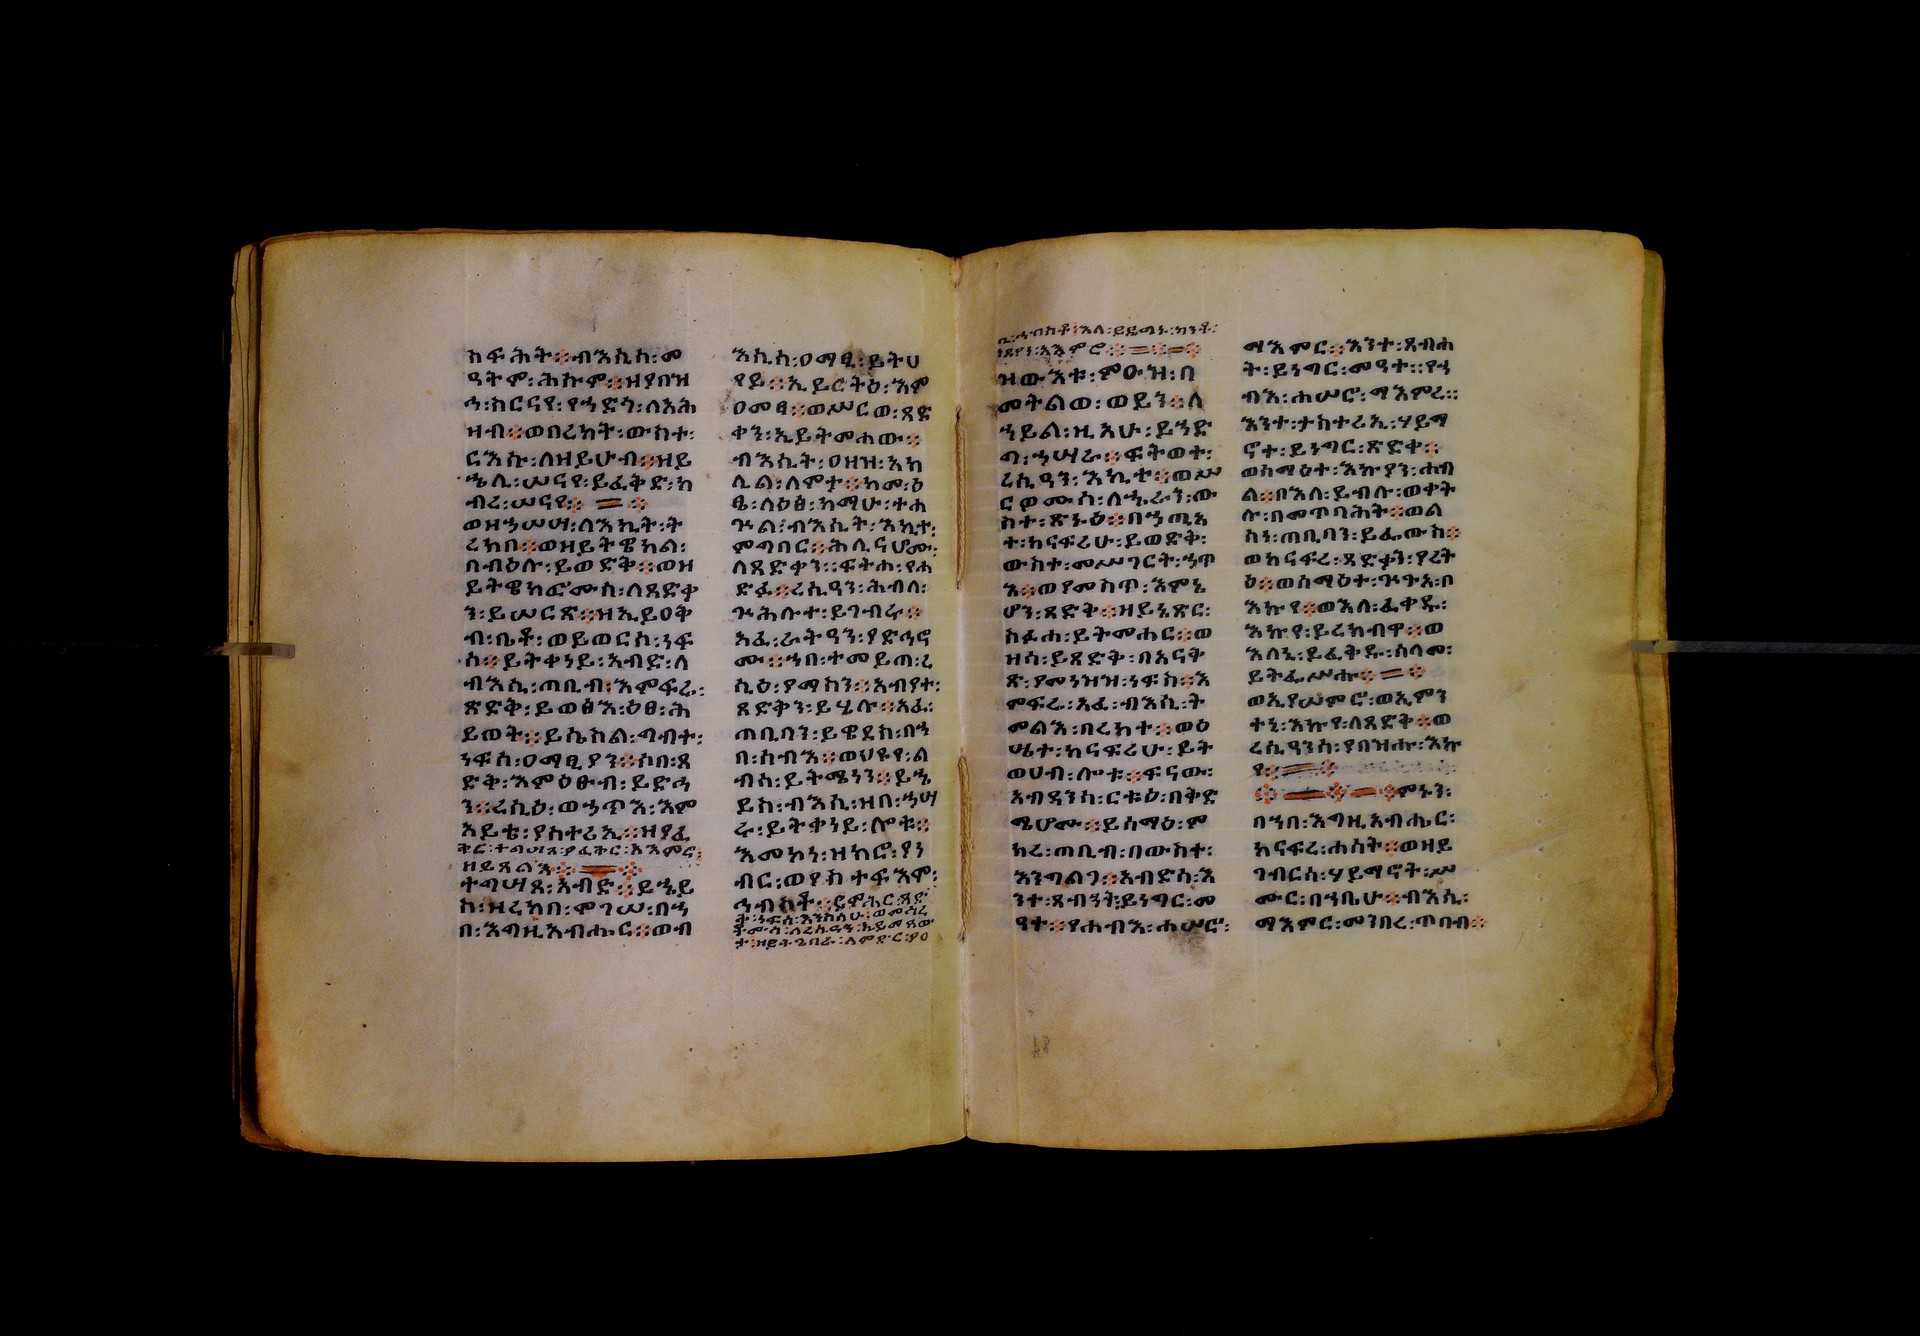 ከፍሕት፨ብእኪከ፡መ
ዓትም፡ሕኩም፨ዘያበዝ
ኅ፡ከርናየ፡የኀድጎ፡ለአሕ
ዛብ፨ወበረከት፡ውስተ፡
ርእሱ፡ለዘይሁብ፨ዘይ
ኄሊ፡ሠናየ፡ይፈቅድ፡ከ
ብረ፡ሠናየ፨ ፨
ወዘኀሠሣ፡ለእኪት፡ት
ረክበ፨ወዘይትዌከል፡
በብዕሉ፡ይወድቅ፨ወዘ
ይትዌከፎሙሰ፡ለጻድቃ
ን፡ይሠርጽ፨ዘኢይዐቅ
ብ፡ቤቶ፡ወይወርስ፡ነፍ
ሰ፨ይትቀነይ፡አብድ፡ለ
ብእሲ፡ጠቢብ፡እምፍሬ፡
ጽድቅ፡ይወፅእ፡ዕፀ፡ሕ
ይወት፨ይሴስል፡ግብተ፡
ነፍሰ፡ዐማፂያን፨ሶበ፡ጻ
ድቅ፡እምዕፁብ፡ይድኅ
ን፨ረሲዕ፡ወኃጥእ፡እም
አይቴ፡ያስተሪኢ፨ዘያፈ
ቅር፡ተግሣጸ፡ያፈቅር፡አእምሮ፡
ዘይጸልእ፨ ፨
ተግሣጸ፡አብድ፨ይኄይ
ስ፡ዘረከበ፡ሞገሠ፡በኀ
በ፡እግዚአብሔር፨ወብ
እሲስ፡ዐማፂ፡ይትሀ
የይ፨ኢይረትዕ፡እም
ዐመፃ፨ወሥርወ፡ጻድ
ቃን፡ኢይትመሐው፨
ብእሲት፡ዐዘዝ፡አክ
ሊል፡ለምታ፨ከመ፡ዕ
ፄ፡ለዕፀ፡ከማሁ፡ተሐ
ጕል፡ብእሲት፡እኪተ፡
ምግባር፨ሕሊናሆሙ፡
ለጻድቃን፨ፍትሐ፡የሐ
ድፉ፨ረሲዓን፡ሕብለ፡
ጕሕሉተ፡ይገብሩ፨
አፈ፡ራትዓን፡ያድኅኖ
ሙ፨ኀበ፡ተመይጠ፡ረ
ሲዕ፡የማስን፨አብያተ፡
ጻድቅን፡ይሄሉ፨አፈ፡
ጠቢባን፡ይዌደስ፡በኀ
በ፡ሰብእ፨ወህዩየ፡ል
ብሰ፡ይትሜነን፨ይኄ
ይስ፡ብእሲ፡ዘበ፡ኀሣ
ሩ፡ይትቀነይ፡ሎቱ፨
እመኮነ፡ዝክሮ፡የን
ብር፡ወየከተፍእሞ፡
ኅብስት፨
ዝውእቱ፡ምዑዝ፡በ
መትልወ፡ወይን፨ለ
ኀይል፡ዚአሁ፡ይኀድ
ግ፡ኀሣራ፨ፍትወተ፡
ረሲዓን፡እኪተ፨ወሥ
ርወሙሰ፡ለኄራን፡ው
ስተ፡ጽኑዕ፨በኀጢአ
ተ፡ከናፍሪሁ፡ይወድቅ፡
ውስተ፡መሥገርት፡ኃጥ
እ፨ወያመስጥ፡እምኔ
ሆን፡ጻድቅ፨ዘይኔጽር፡
ስፉሐ፡ይትመሐር፨ወ
ዝሰ፡ይጸድቅ፡በአናቅ
ጽ፡ያመነዝዝ፡ነፍሰ፨እ
ምፍሬ፡አፈ፡ብእሲ፡ት
መልእ፡በረከተ፨ወዕ
ሤተ፡ከናፍሪሁ፡ይት
ወሀብ፡ሎቱ፨ፍናው፡
አብዳንሰ፡ርቱዕ፡በቅድ
ሜሆሙ፨ይሰማዕ፡ም
ክረ፡ጠቢብ፡በውስተ፡
እንግልገ፨አብድሰ፡እ
ንተ፡ጸብንት፡ይነግር፡መ
ዓተ፨የሐብእ፡ሐሣሮ፡
ማእምር፨እንተ፡ጸብሐ
ት፡ይነግር፡መዓተ፨የኀ
ብእ፡ሐሣሮ፡ማእምረ፨
እንተ፡ታስተሪኢ፡ሃይማ
ኖተ፡ይነግር፡ጽድቀ፨
ወስማዕተ፡እኩያን፡ሐብ
ል፨በእለ፡ይብሉ፡ወቀት
ሉ፡በመጥባሕት፨ወል
ሳነ፡ጠቢባን፡ይፌውስ፨
ወከናፍረ፡ጻድቃን፡ያረት
ዕ፨ወሰማዕተ፡ጕጉአ፡በ
እኩየ፨ወእለ፡ፈቀዱ፡
እኩየ፡ይረክብዋ፨ወ
እለኒ፡ይፈቅዱ፡ሰላመ፡
ይትፌሥሑ፨ ፨
ወኢያሠምሮ፡ወኢምን
ተኒ፡እኩየ፡ለጻድቅ፨ወ
ረሲዓንሰ፡ያበዝሑ፡እኩ
የ፨
ምኑን፡
በኀበ፡እግዚአብሔር፡
ከናፍረ፡ሐሰት፨ወዘይ
ገብርሰ፡ሃይማኖት፡ሥ
ሙር፡በኀቤሁ፨ብእሲ፡
ማእምር፡መንበረ፡ጥበብ፨